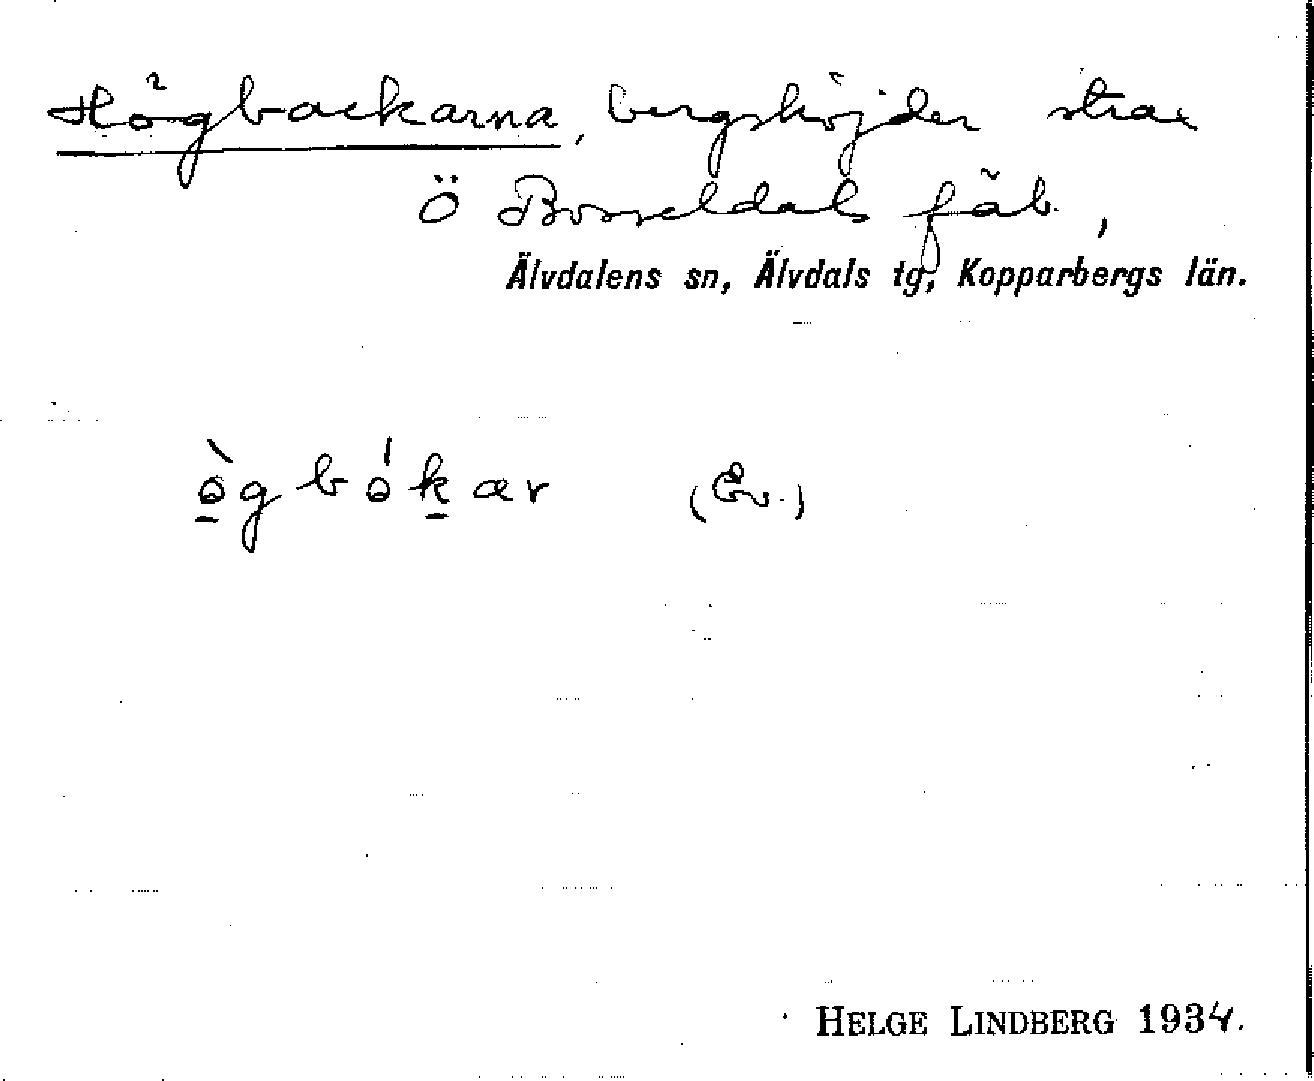 Högbackarna, bergshöjder strax
Ö Bosseldals fäb.,
Älvdalens sn, Älvdals tg, Kopparbergs län.
ò̱gbóḵar (Ev.)
HELGE LINDBERG 1934.